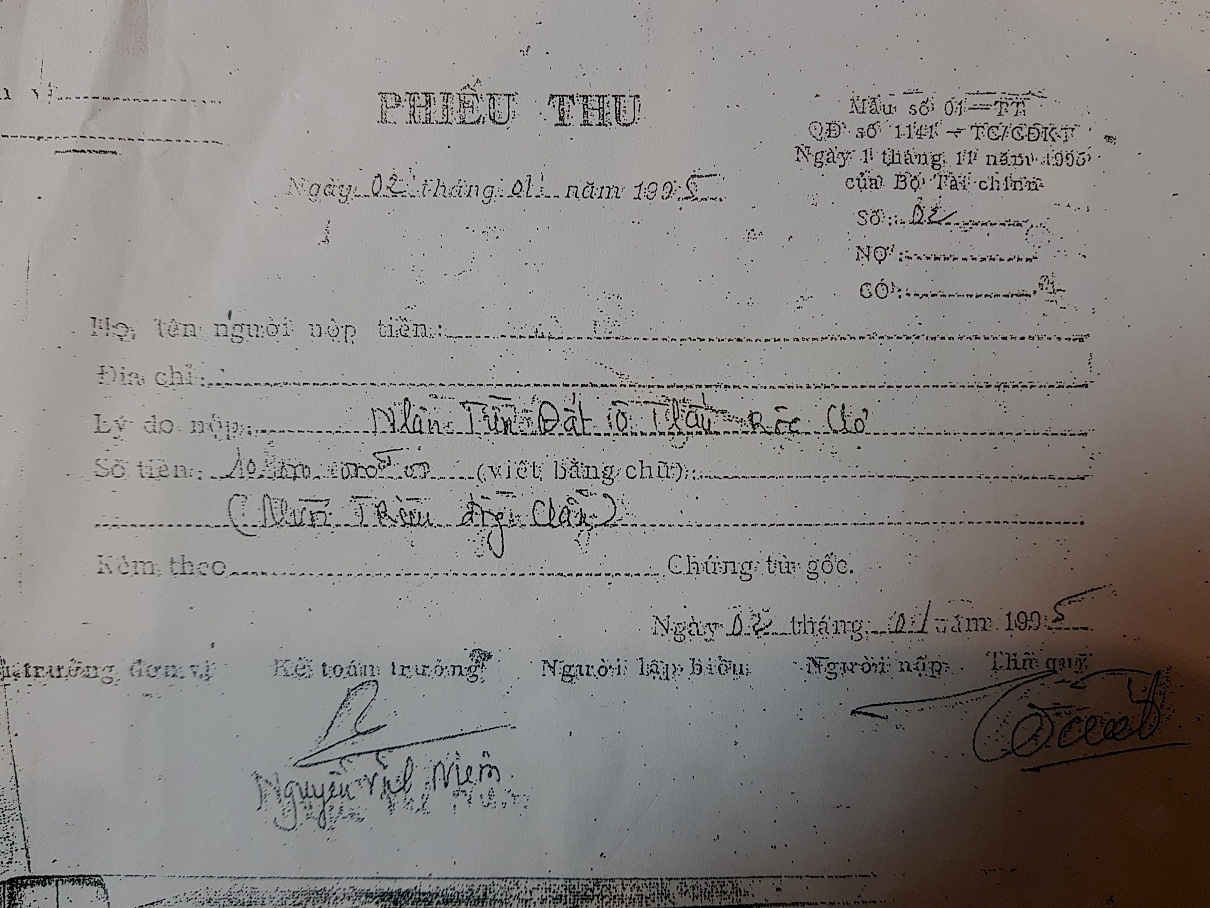 PHIẾU THU
Mẫu số 01-TT
QĐ số 1141 - TC/CĐKT
Ngày 1 tháng 11 năm 1995
của Bộ Tài chính
Ngày 02 tháng 01 năm 1995
Số: 02
NỢ:
CÓ:
Họ, tên người nộp tiền:
Địa chỉ:
Lý do nộp: Nhận Tiền Đất Thầu Rộc Chợ
Số tiền: (viết bằng chữ):
Triệu đồng chẵn)
Kèm theo Chứng từ gốc.
Ngày 02 tháng 01 năm 1995
trưởng đơn vị Kế toán trưởng Người lập biểu Người nộp Thủ quỹ
Nguyễn